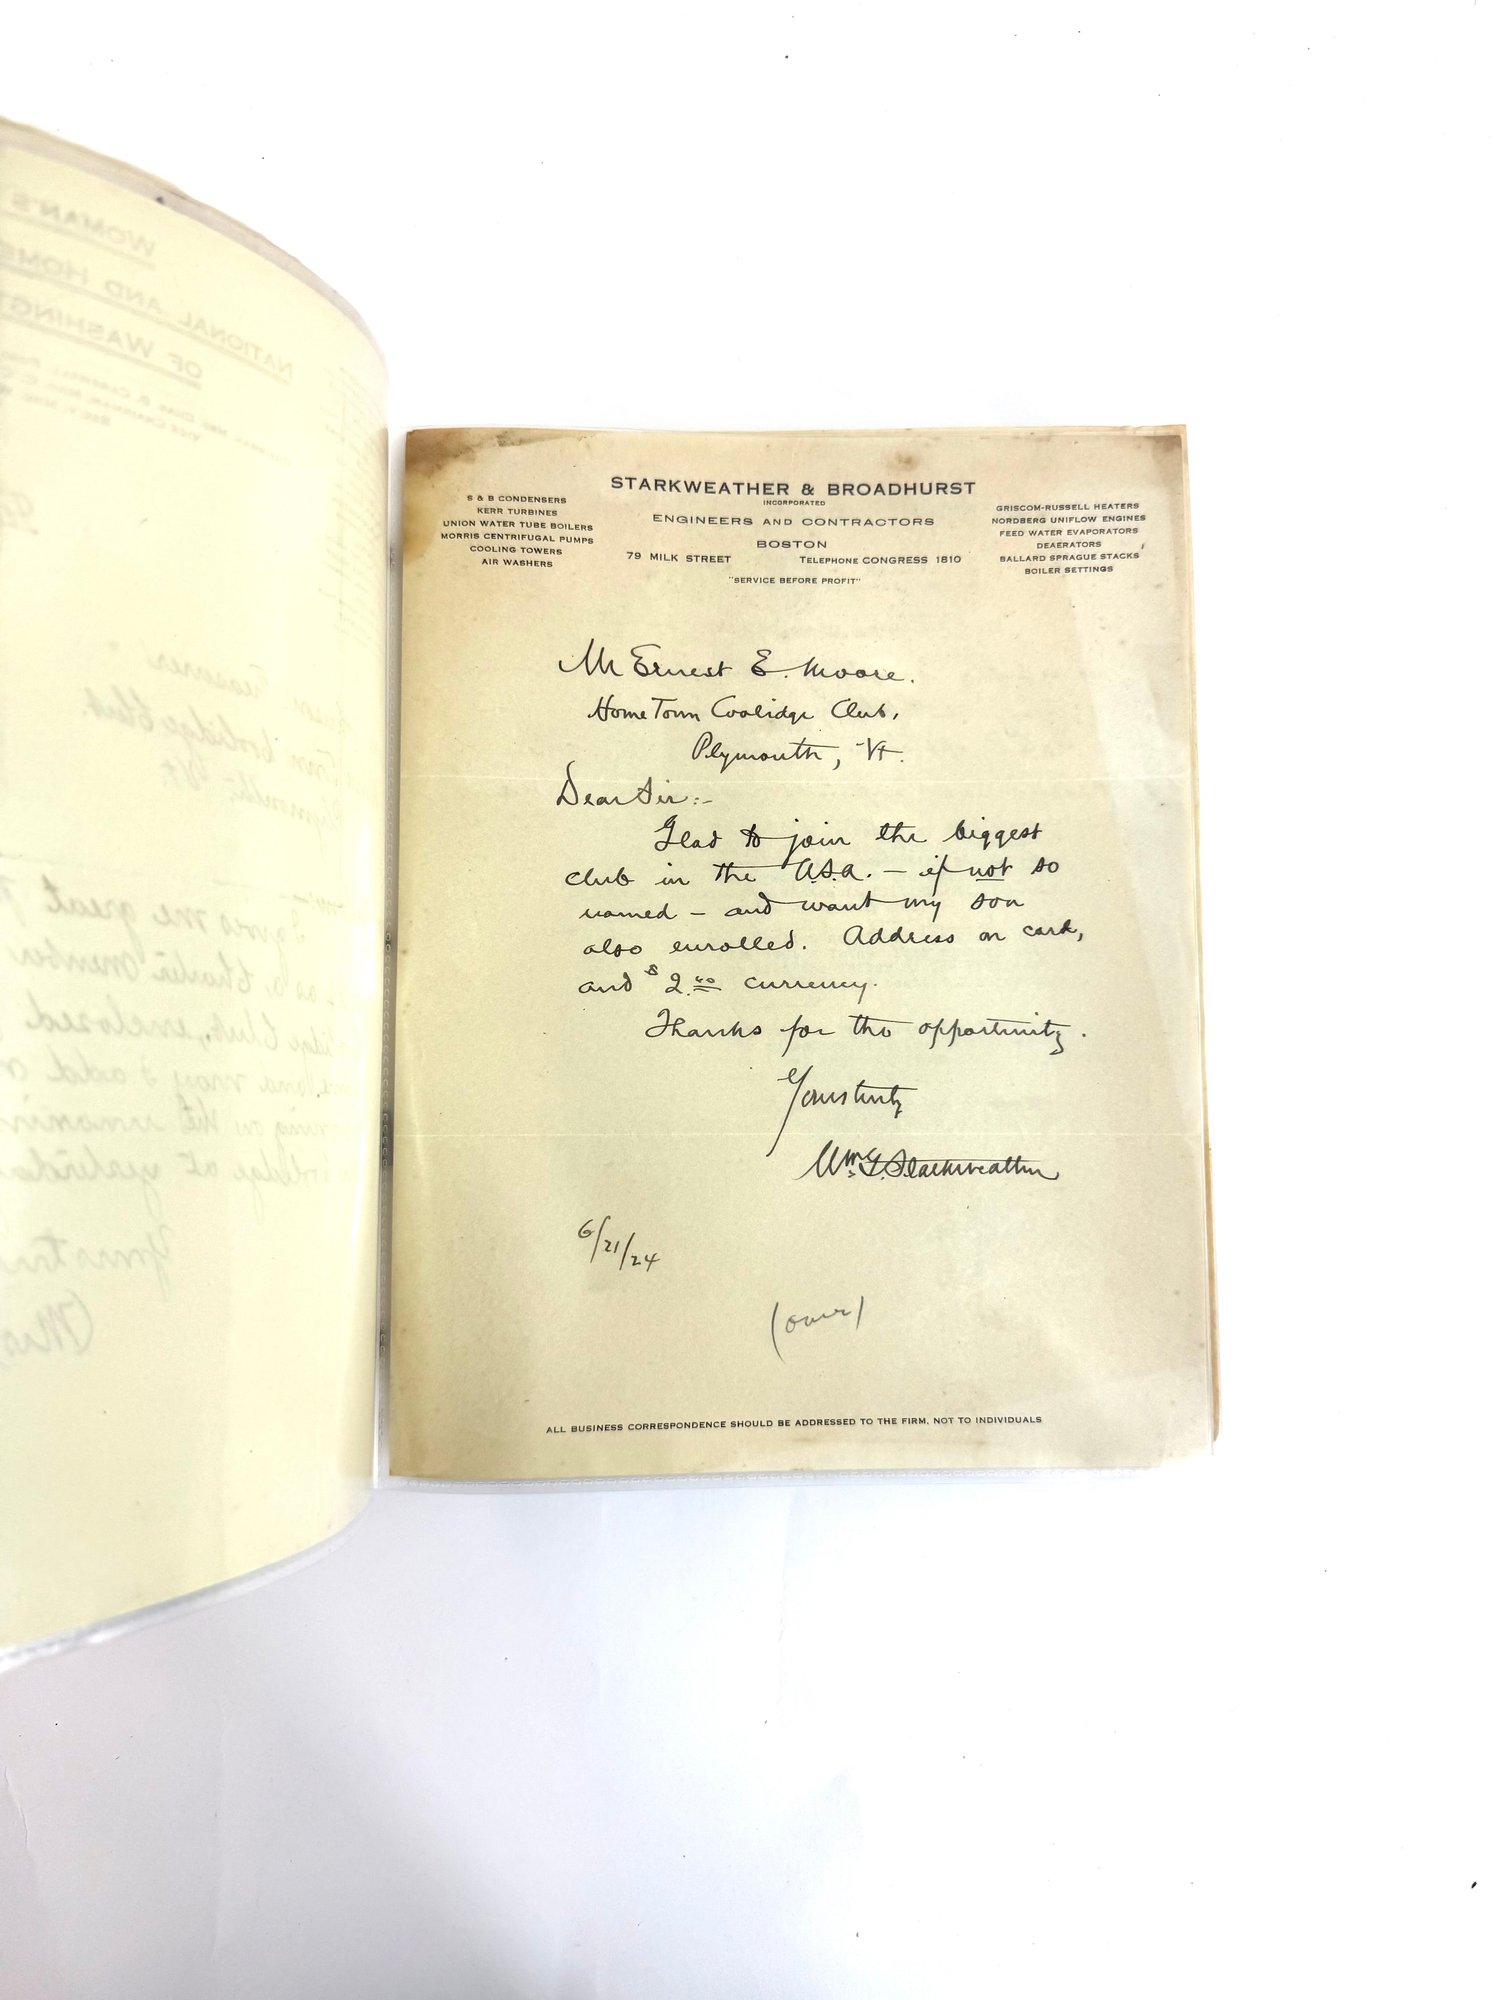 STARKWEATHER & BROADHURST
INCORPORATED
ENGINEERS AND CONTRACTORS
BOSTON
79 MILK STREET TELEPHONE CONGRESS 1810
"SERVICE BEFORE PROFIT"
S & B CONDENSERS
KERR TURBINES
UNION WATER TUBE BOILERS
MORRIS CENTRIFUGAL PUMPS
COOLING TOWERS
AIR WASHERS
GRISCOM-RUSSELL HEATERS
NORDBERG UNIFLOW ENGINES
FEED WATER EVAPORATORS
DEAERATORS
BALLARD SPRAGUE STACKS
BOILER SETTINGS
Mr Ernest E. Moore.
Home Town Coolidge Club,
Plymouth, Vt.
Dear Sir:-
Glad to join the biggest
club in the U.S.A. - if not so
named - and want my son
also enrolled. Address on card,
and $2.00 currency.
Thanks for the opportunity.
Yours truly
Wm. G. Starkweather
6/21/24
(over)
ALL BUSINESS CORRESPONDENCE SHOULD BE ADDRESSED TO THE FIRM, NOT TO INDIVIDUALS
WOMAN'S
NATIONAL AND HOME
OF WASHINGT
Treasurer
Town Coolidge Club,
Plymouth, Vt.
gives me great
as a charter member
Club, enclosed
and may I add